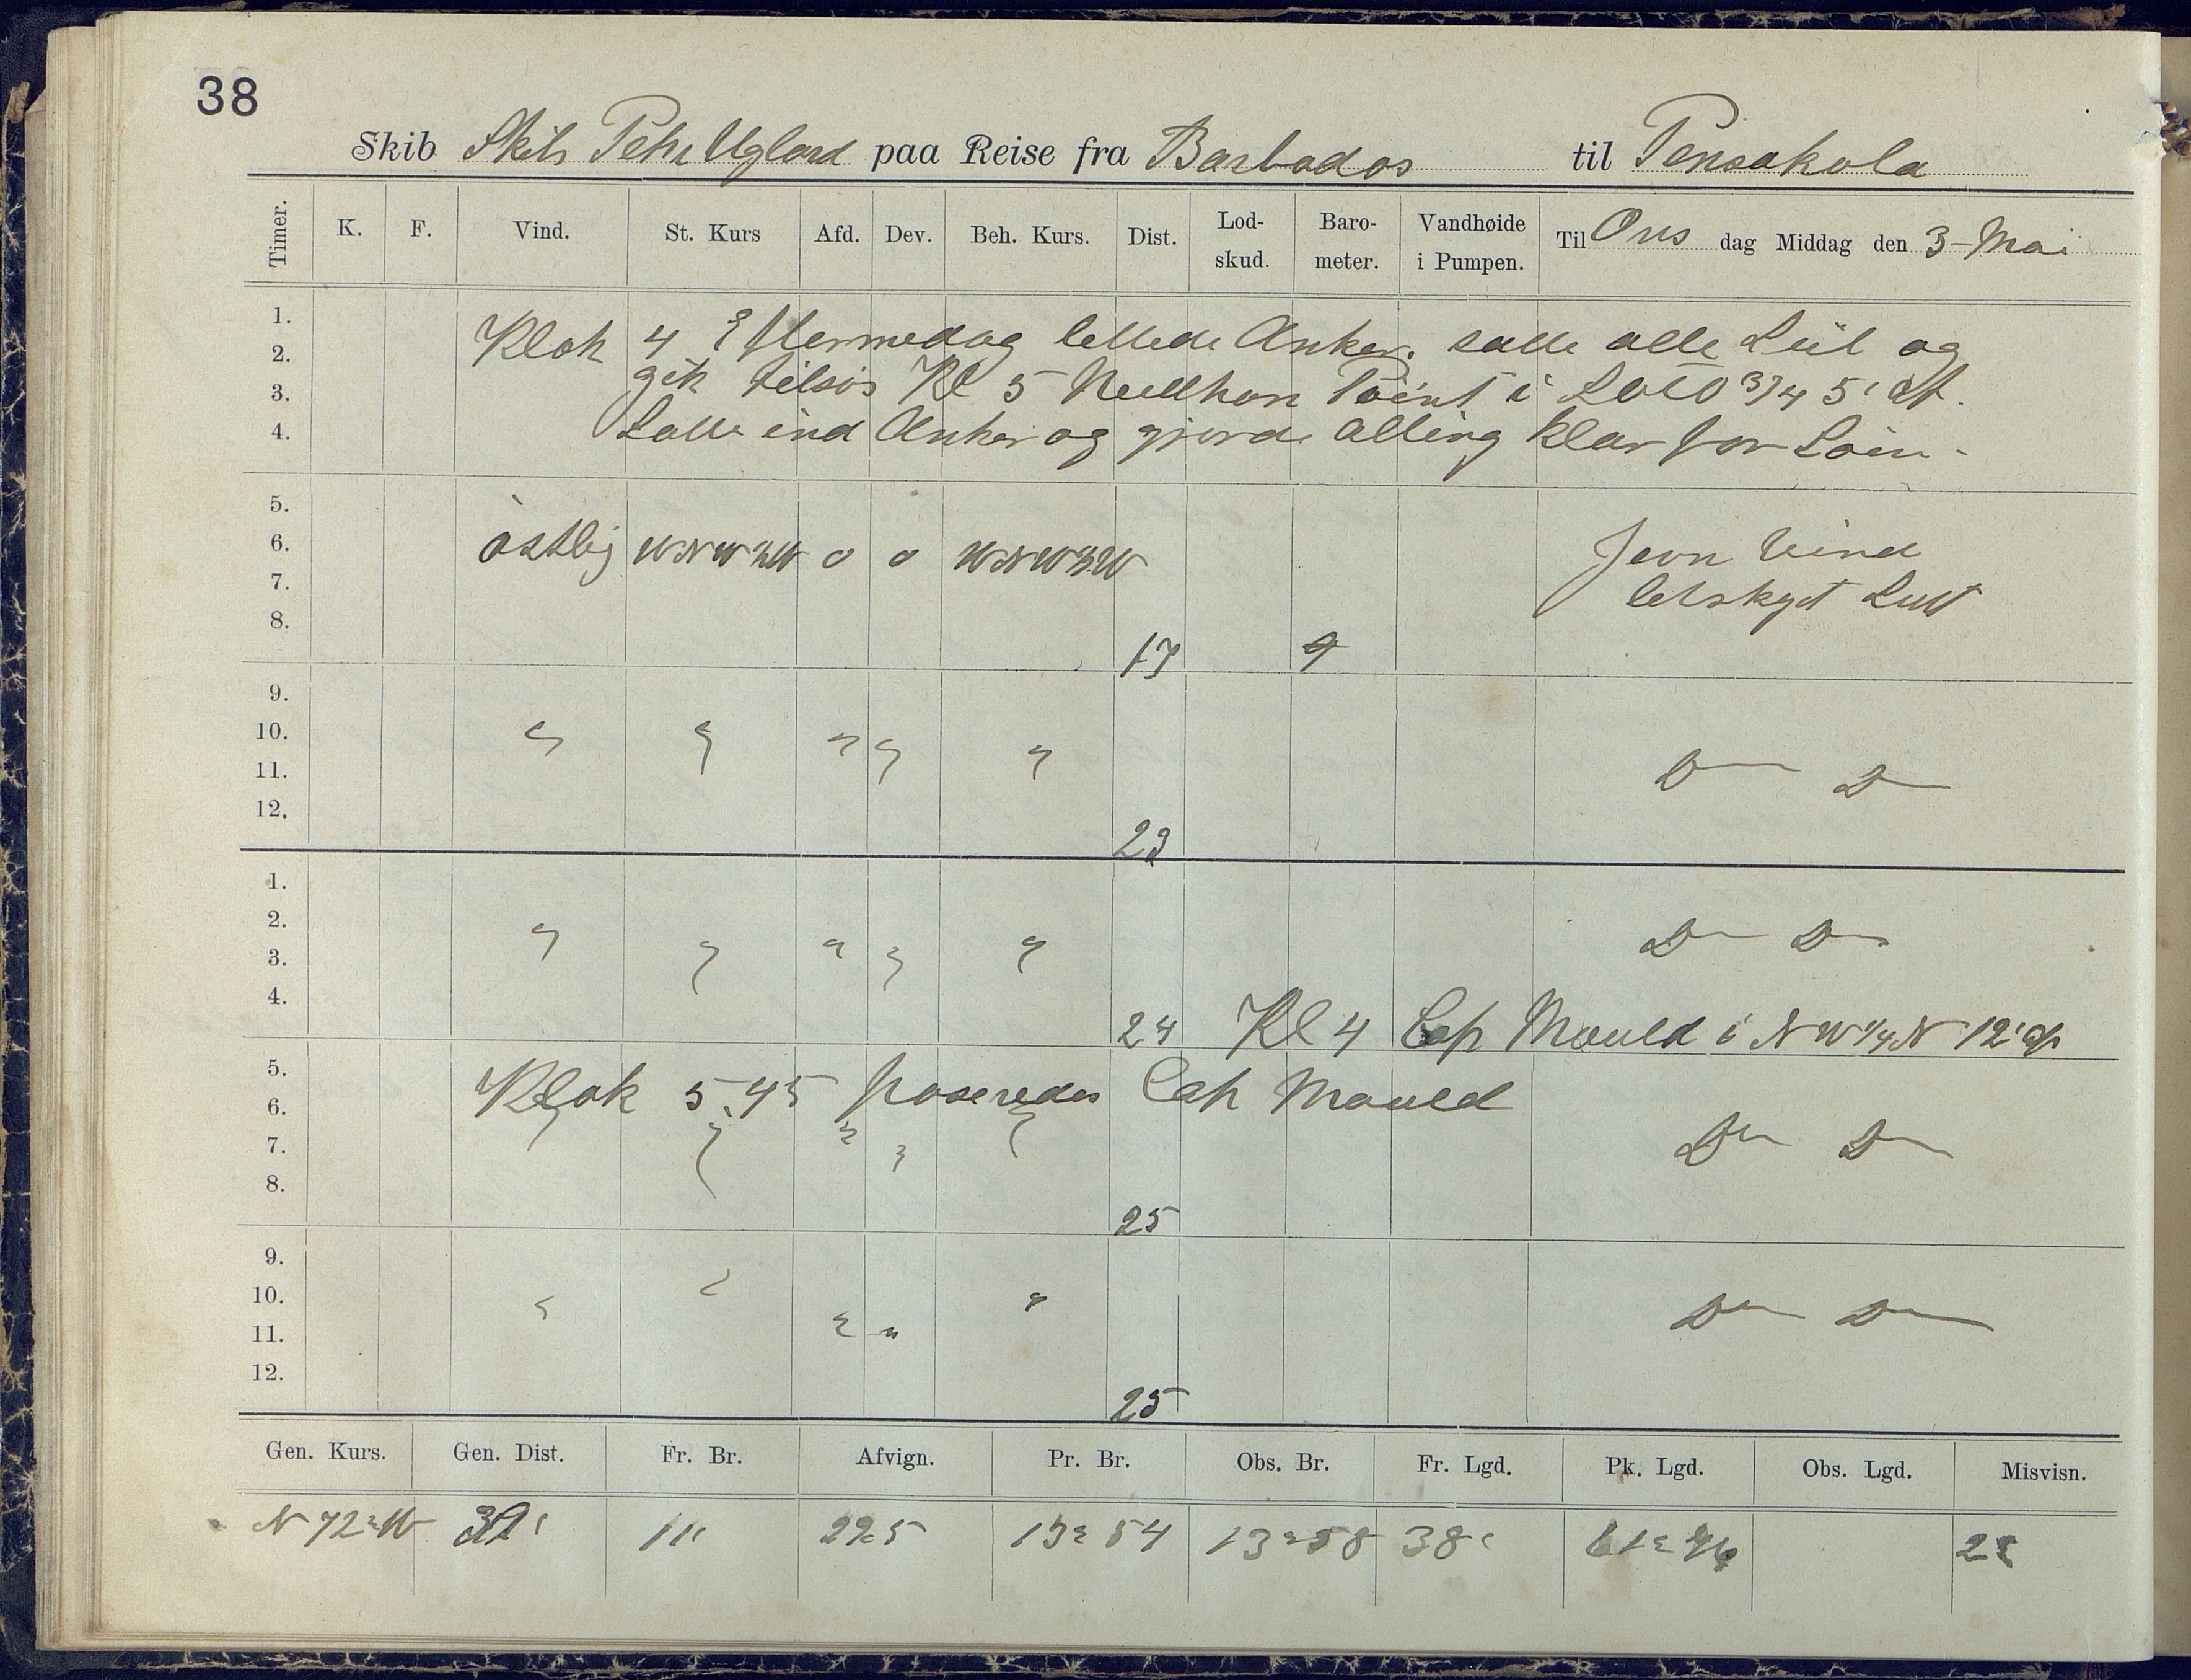 38
Skib Skib Peter Ugland paa Reise fra Barbados til Pensakola
Timer. K. F. Vind. St. Kurs Afd. Dev. Beh. Kurs. Dist. Lod-skud. Baro-meter. Vandhøide i Pumpen. Til Ons dag Middag den 3-Mai
1.
2. Klok 4 Eftermedag lettede Anker. satte alle Seil og
3. gik tilsøs Kl 5 Point i 3/4 5' Af.
4. Satte ind Anker og gjorde alting klar for
5.
6. östlig WNW3/4W 0 0 WNW3/4W Jevn Vind
7. letskyet Luft
8. 17 9
9.
10. " " " " "
11. Do Do
12. 23
1.
2. " " " " " Do Do
3.
4. 24 Kl 4 Cap Mauld i NW1/4N 12' af
5. Klok 5.45 paseredes Cap Mauld
6.
7. " " " " " Do Do
8. 25
9.
10. " " " " " Do Do
11.
12. 25
Gen. Kurs. Gen. Dist. Fr. Br. Afvign. Pr. Br. Obs. Br. Fr. Lgd. Pk. Lgd. Obs. Lgd. Misvisn.
N 72° W 11' 13° 54 13° 58 38'